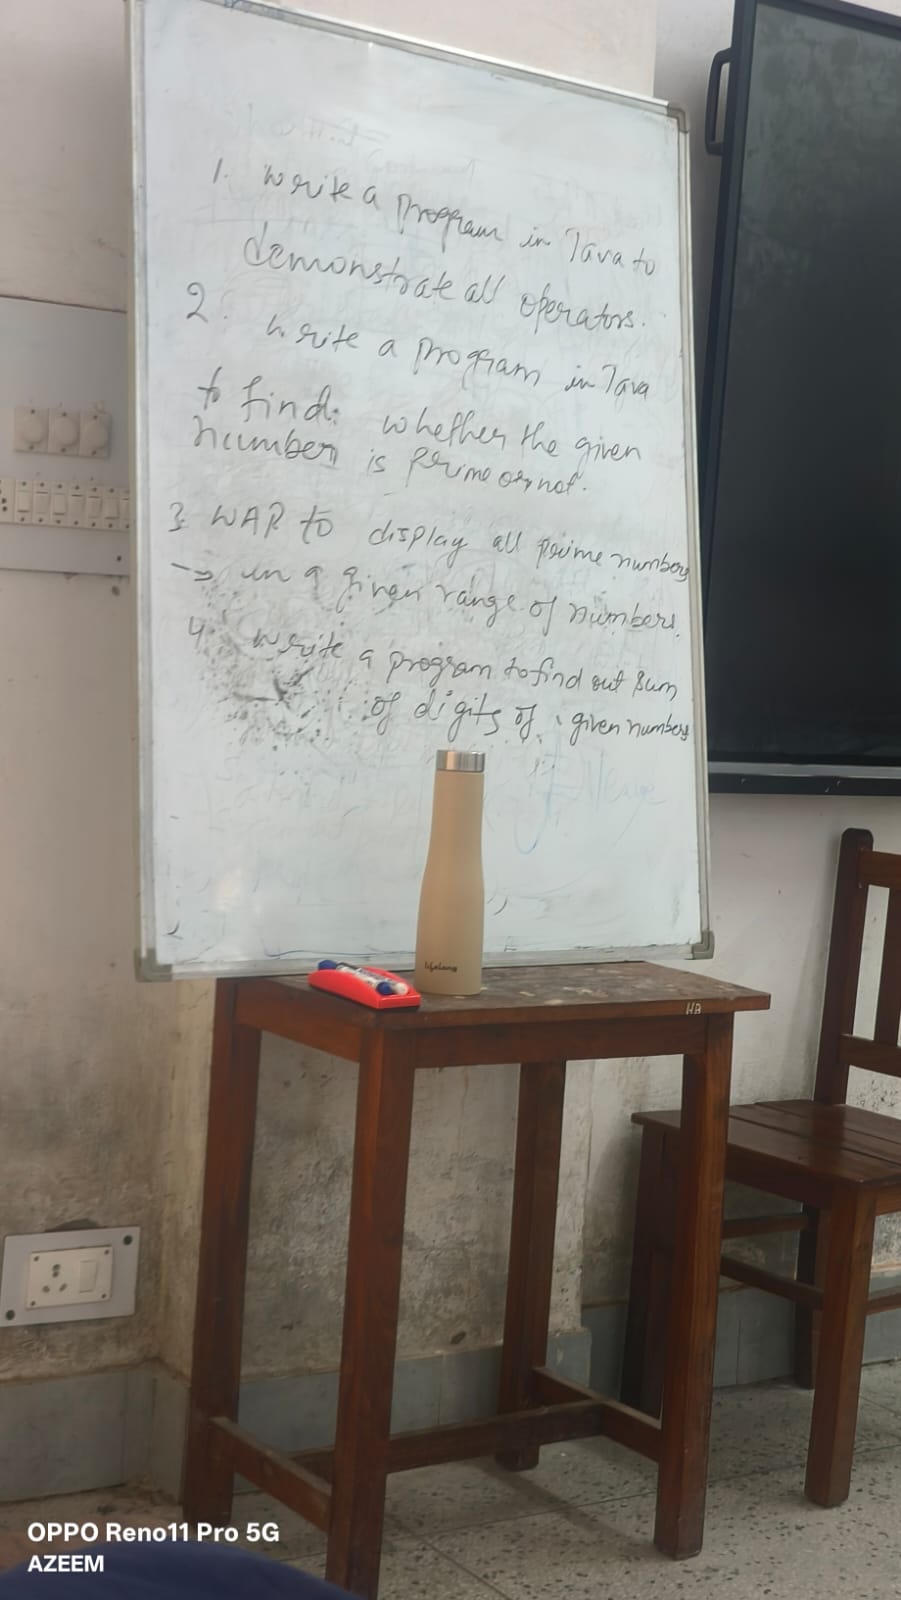 1. Write a program in Java to
demonstrate all operators.
2. Write a program in Java
to find: whether the given
number is prime or not.
3 WAP to display all prime numbers
→ in a given range of numbers.
4. Write a program to find out sum
of digits of given numbers
lifelong
HB
OPPO Reno11 Pro 5G
AZEEM